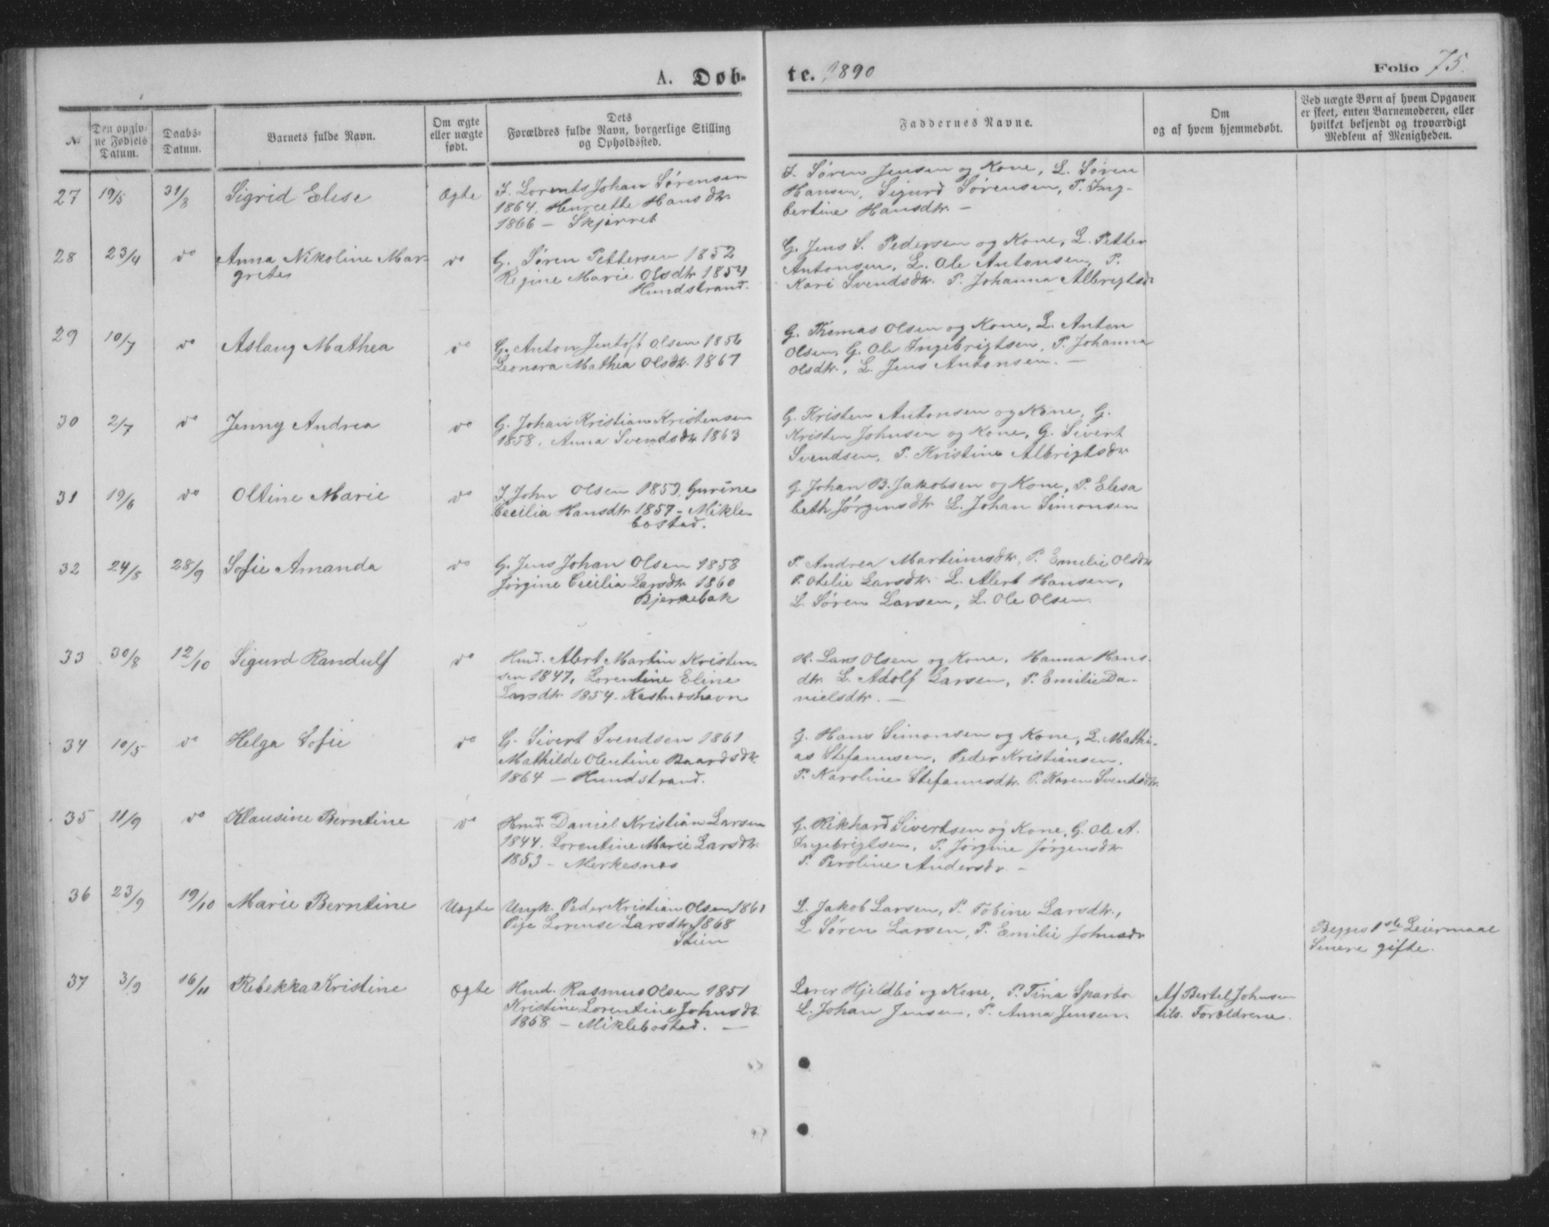 A. Døb- te. 1890 Folio 75.
№
Den opgivne Fødsels Datum.
Daabs-Datum.
Barnets fulde Navn.
Om ægte eller uægte født.
Dets Forældres fulde Navn, borgerlige Stilling og Opholdssted.
Faddernes Navne.
Om og af hvem hjemmedøbt.
Ved uægte Børn af hvem Opgaven er skeet, enten Barnemoderen, eller hvilket bekjendt og troværdigt Medlem af Menigheden.
27 19/5 31/8 Sigrid Elise Ægte
I. Lorents Johan Sørensen
1864. Henrette Hansdtr
1866 — Skjærret
I. Søren Jensen og Kone, L. Søren
Hansen, Sigurd Sørensen, P. Ing-
bertine Hansdtr. —
28 23/4 do Anna Nikoline Mar-
grete do
G. Søren Pettersen 1852
Regine Marie Olsdtr 1854
Hundstrand.
G. Jens S. Pedersen og Kone, L. Petter
Antonsen, L. Ole Antonsen, P.
Kari Svendsdtr. P. Johanna Albrigtsdtr
29 10/7 do Aslaug Mathea do
G. Anton Jentoft Olsen 1856
Leonora Mathea Olsdtr. 1867
G. Thomas Olsen og Kone, L. Anton
Olsen, G. Ole Ingebrigtsen, P. Johanna
Olsdtr., L. Jens Antonsen. —
30 2/7 do Jenny Andrea do
G. Johan Kristian Kristensen
1858. Anna Svendsdtr 1863
G. Kristen Antonsen og Kone, G.
Kristen Johnsen og Kone, G. Sivert
Svendsen, P. Kristine Albrigtsdtr
31 19/6 do Oltine Marie do
I. John Olsen 1853. Gurine
Cecilia Hansdtr 1857 - Mikle-
bostad.
G. Johan B. Jakobsen og Kone, P. Elesa
beth Jørgensdtr L. Johan Simonsen
32 24/8 28/9 Sofie Amanda do
G. Jens Johan Olsen 1858
Jørgine Cecilia Larsdtr 1860
Bjerkebak
P. Andrea Martinusdtr, P. Emelie Olsdtr
P. Otelie Larsdtr - L. Alert Hansen,
L. Søren Larsen, L. Ole Olsen.
33 30/8 12/10 Sigurd Randulf do
Hmd. Albert Martin Kristen-
sen 1847, Lorentine Eline
Larsdtr 1854. Kastneshavn
H. Lars Olsen og Kone. Hanna Hans-
dtr L. Adolf Larsen, P. Emilie Da-
nielsdtr. —
34 10/5 do Helga Sofie do
G. Sivert Svendsen 1861
Mathilde Olentine Baardsdtr
1864 — Hundstrand.
G. Hans Simonsen og Kone, L. Mathi-
as Stefanusen, Peder Kristiansen,
P. Karoline Stefanusdtr P. Karen Svendsdtr
35 11/9 do Klausine Berntine do
Hmd. Daniel Kristian Larsen
1844. Lorentine Marie Larsdtr
1853 - Merkesnes
G. Rikhard Sivertsen og Kone, G. Ole A.
Ingebrigtsen, P. Jørgine Jørgensdtr
P. Peroline Andersdtr —
36 23/9 19/10 Marie Berntine Uægte
Ungk. Peder Kristian Olsen 1861
Pige Lorense Larsdtr 1868
Stien
L. Jakob Larsen, P. Tobine Larsdtr,
L. Søren Larsen, P. Emilie Johnsdtr
Begges 1ste Leiermaal
Senere gifte.
37 3/9 16/11 Rebekka Kristine Ægte
Hmd. Rasmus Olsen 1851
Kristine Lorentine Johnsdtr
1868 — Miklebostad. —
Lærer Hjeldbø og Kone, P. Tina Sparbo
L. Johan Jensen, P. Anna Jensen.
Af Bertel Johnsen
tils. Forældrene.